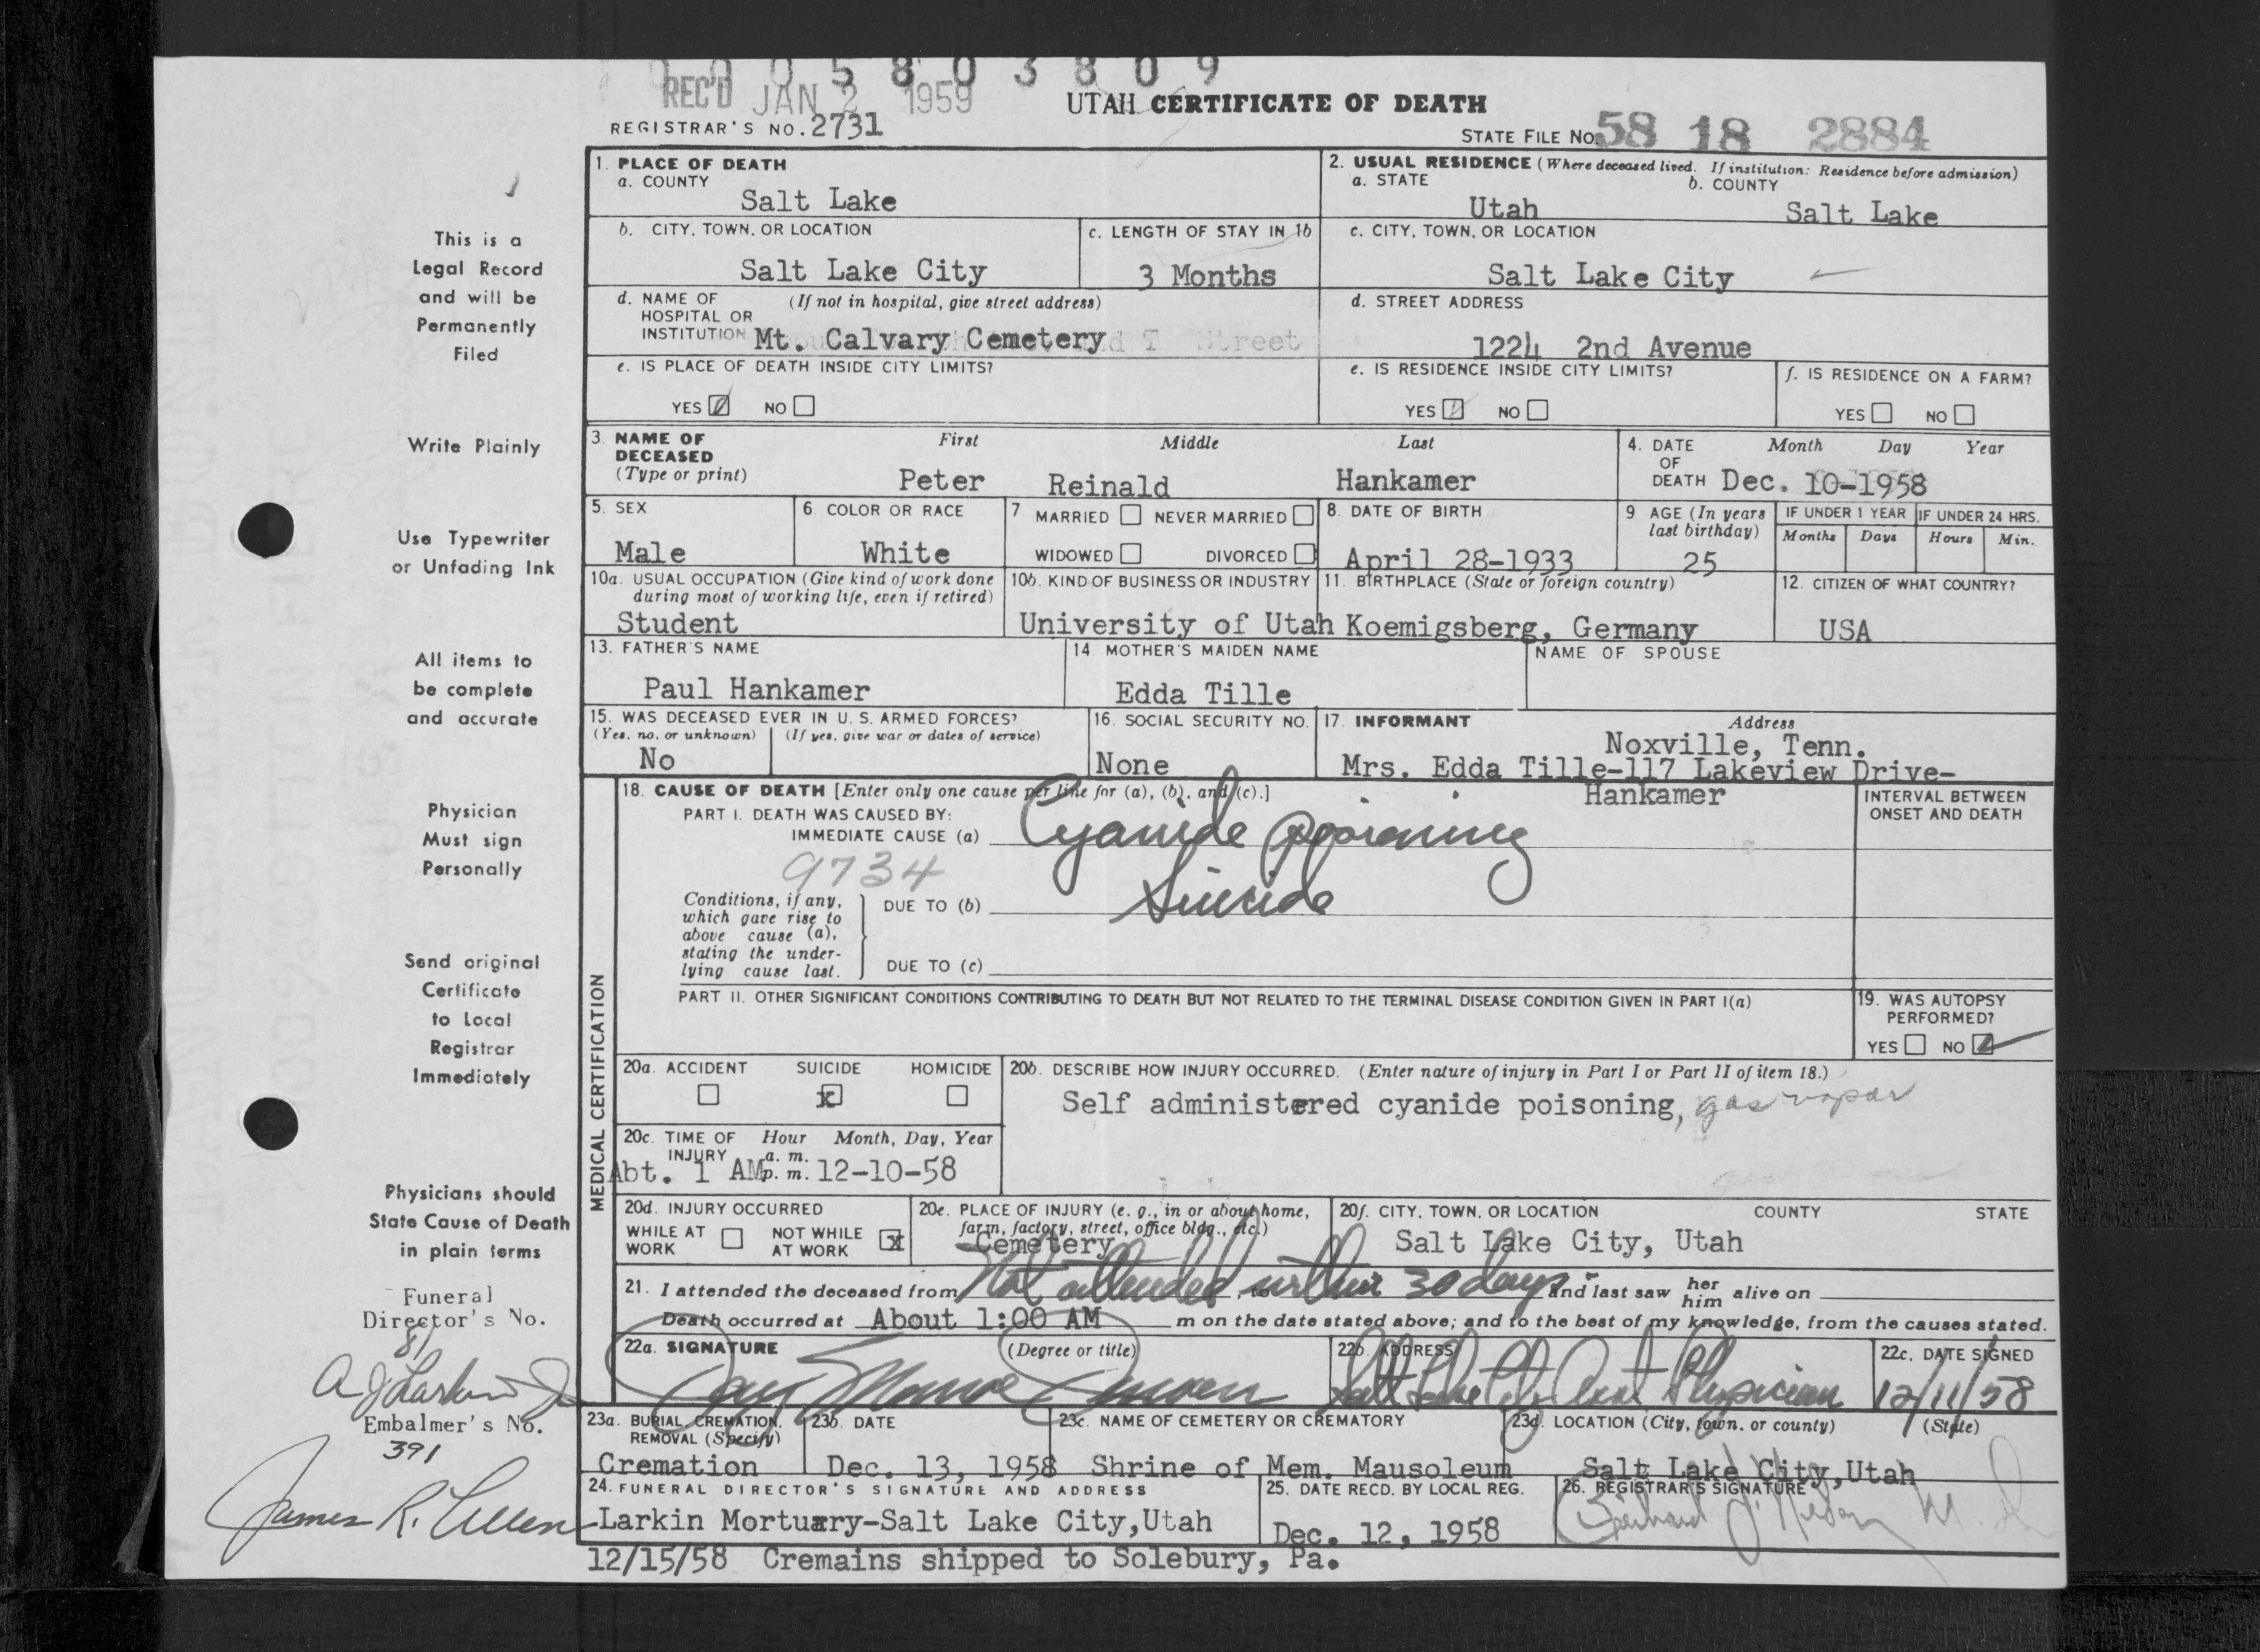 0 0 0 5 8 0 3 8 0 9
REC'D JAN 2 1959
UTAH CERTIFICATE OF DEATH
REGISTRAR'S NO. 2731
STATE FILE NO. 58 18 2884
This is a
Legal Record
and will be
Permanently
Filed
Write Plainly
Use Typewriter
or Unfading Ink
All items to
be complete
and accurate
Physician
Must sign
Personally
Send original
Certificate
to Local
Registrar
Immediately
Physicians should
State Cause of Death
in plain terms
Funeral
Director's No.
81
A J Larkin Jr
Embalmer's No.
391
James R. Cullen
1. PLACE OF DEATH
a. COUNTY
Salt Lake
2. USUAL RESIDENCE (Where deceased lived. If institution: Residence before admission)
a. STATE
Utah
b. COUNTY
Salt Lake
b. CITY, TOWN, OR LOCATION
Salt Lake City
c. LENGTH OF STAY IN 1b
3 Months
c. CITY, TOWN, OR LOCATION
Salt Lake City
d. NAME OF (If not in hospital, give street address)
HOSPITAL OR
INSTITUTION Mt. Calvary Cemetery T Street
d. STREET ADDRESS
1224 2nd Avenue
e. IS PLACE OF DEATH INSIDE CITY LIMITS?
YES NO
e. IS RESIDENCE INSIDE CITY LIMITS?
YES NO
f. IS RESIDENCE ON A FARM?
YES NO
3. NAME OF First Middle Last
DECEASED
(Type or print) Peter Reinald Hankamer
4. DATE Month Day Year
OF
DEATH Dec. 10-1958
5. SEX
Male
6. COLOR OR RACE
White
7 MARRIED NEVER MARRIED
WIDOWED DIVORCED
8. DATE OF BIRTH
April 28-1933
9 AGE (In years
last birthday)
25
IF UNDER 1 YEAR IF UNDER 24 HRS.
Months Days Hours Min.
10a. USUAL OCCUPATION (Give kind of work done
during most of working life, even if retired)
Student
10b. KIND OF BUSINESS OR INDUSTRY
University of Utah
11. BIRTHPLACE (State or foreign country)
Koemigsberg, Germany
12. CITIZEN OF WHAT COUNTRY?
USA
13. FATHER'S NAME
Paul Hankamer
14. MOTHER'S MAIDEN NAME
Edda Tille
NAME OF SPOUSE
15. WAS DECEASED EVER IN U. S. ARMED FORCES?
(Yes, no, or unknown) (If yes, give war or dates of service)
No
16. SOCIAL SECURITY NO.
None
17. INFORMANT Address
Noxville, Tenn.
Mrs. Edda Tille-117 Lakeview Drive-
Hankamer
MEDICAL CERTIFICATION
18. CAUSE OF DEATH [Enter only one cause per line for (a), (b), and (c).]
INTERVAL BETWEEN
ONSET AND DEATH
PART I. DEATH WAS CAUSED BY:
IMMEDIATE CAUSE (a) Cyanide poisoning
9734
Conditions, if any,
which gave rise to
above cause (a),
stating the under-
lying cause last.
DUE TO (b) Suicide
DUE TO (c)
PART II. OTHER SIGNIFICANT CONDITIONS CONTRIBUTING TO DEATH BUT NOT RELATED TO THE TERMINAL DISEASE CONDITION GIVEN IN PART I(a)
19. WAS AUTOPSY
PERFORMED?
YES NO
20a. ACCIDENT SUICIDE HOMICIDE
x
20b. DESCRIBE HOW INJURY OCCURRED. (Enter nature of injury in Part I or Part II of item 18.)
Self administered cyanide poisoning, gas vapor
20c. TIME OF Hour Month, Day, Year
INJURY a. m.
Abt. 1 AM p. m. 12-10-58
20d. INJURY OCCURRED
WHILE AT WORK NOT WHILE AT WORK x
20e. PLACE OF INJURY (e. g., in or about home,
farm, factory, street, office bldg., etc.)
Cemetery
20f. CITY, TOWN, OR LOCATION COUNTY STATE
Salt Lake City, Utah
21. I attended the deceased from Not attended, to within 30 days and last saw her him alive on
Death occurred at About 1:00 AM m on the date stated above; and to the best of my knowledge, from the causes stated.
22a. SIGNATURE (Degree or title)
22b. ADDRESS
Salt Lake City Physician
22c. DATE SIGNED
12/11/58
23a. BURIAL, CREMATION,
REMOVAL (Specify)
Cremation
23b. DATE
Dec. 13, 1958
23c. NAME OF CEMETERY OR CREMATORY
Shrine of Mem. Mausoleum
23d. LOCATION (City, town, or county) (State)
Salt Lake City, Utah
24. FUNERAL DIRECTOR'S SIGNATURE AND ADDRESS
Larkin Mortuary-Salt Lake City, Utah
25. DATE RECD. BY LOCAL REG.
Dec. 12, 1958
26. REGISTRAR'S SIGNATURE
12/15/58 Cremains shipped to Solebury, Pa.